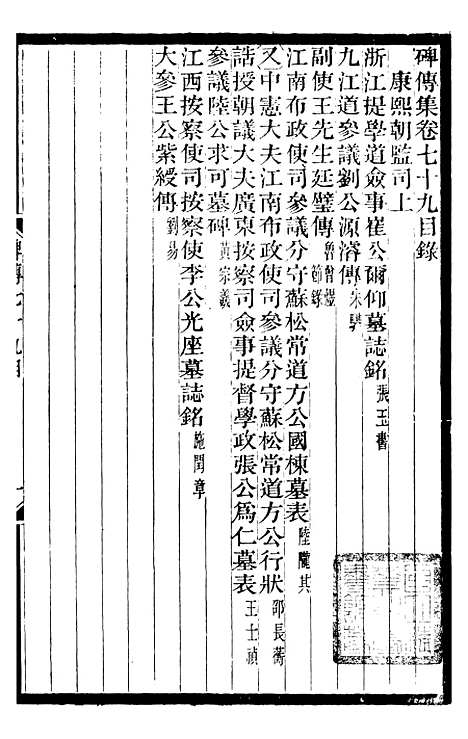 碑傳集卷七十九目錄
康熙朝監司上
浙江提學道僉事崔公爾仰墓誌銘 張玉書
九江道參議劉公源濬傳 朱騂
副使王先生廷璧傳 魯曾煜 節錄
江南布政使司參議分守蘇松常道方公國棟墓表 陸隴其
又中憲大夫江南布政使司參議分守蘇松常道方公行狀 邵長蘅
誥授朝議大夫廣東按察司僉事提督學政張公爲仁墓表 王士禎
參議陸公求可墓碑 黃宗羲
江西按察使司按察使李公光座墓誌銘 施閏章
大參王公紫綬傳 劉易